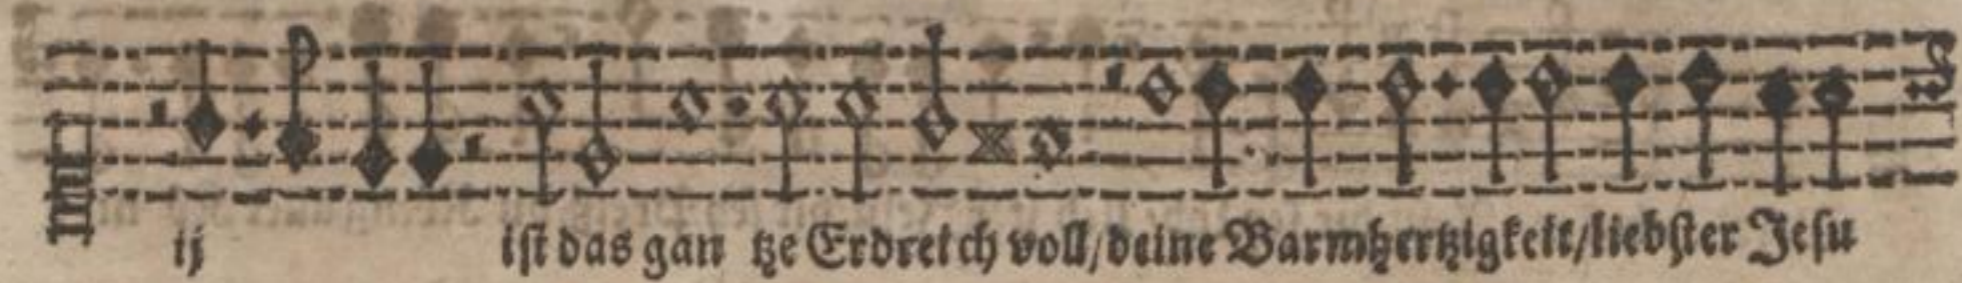 ij ist das gan tze Erdreich voll/deine Barmhertzigkeit/liebster Jesu